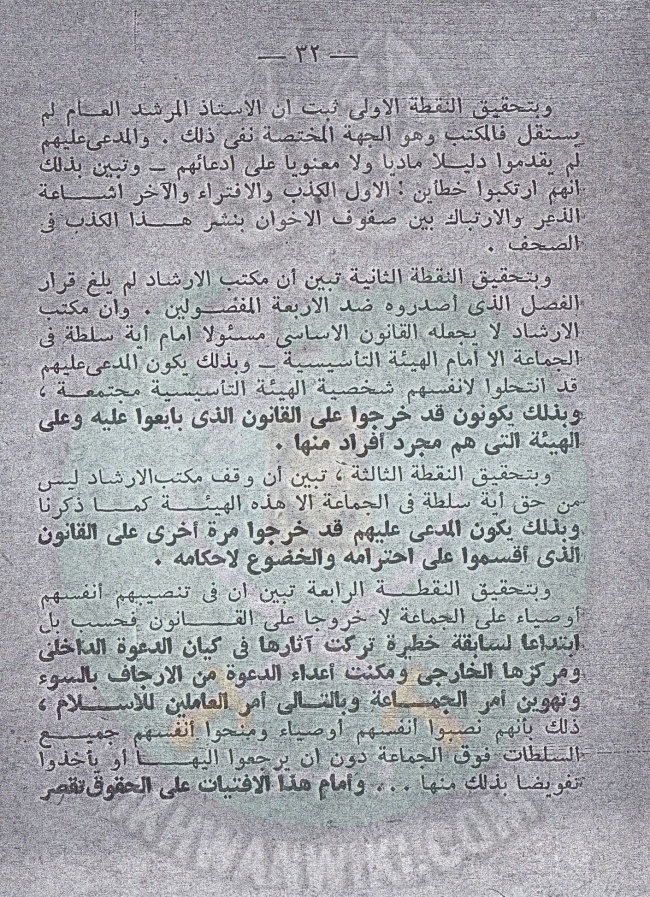 — ٣٢ —
وبتحقيق النقطة الاولى ثبت ان الاستاذ المرشد العـام لم
يستقل فالمكتب وهو الجهة المختصة نفى ذلك . والمدعى عليهم
لم يقدموا دليـلا ماديا ولا معنويا على ادعائهم ــ وتبين بذلك
انهم ارتكبوا خطأين : الاول الكذب والافتراء والآخر اشـــاعة
الذعر والارتباك بين صفوف الاخوان بنشر هـــذا الكذب فى
الصحف .
وبتحقيق النقطة الثانية تبين أن مكتب الارشاد لم يلغ قرار
الفصل الذى أصدروه ضد الاربعة المفصـولين . وان مكتب
الارشاد لا يجعله القانون الاساسى مسئولا امام أية سلطة فى
الجماعة الا أمام الهيئة التأسيسية ــ وبذلك يكون المدعى عليهم
قد انتحلوا لانفسهم شخصية الهيئة التأسيسية مجتمعــة ،
وبذلك يكونون قد خرجوا على القانون الذى بايعوا عليه وعلى
الهيئة التى هم مجرد أفراد منها .
وبتحقيق النقطة الثالثة ، تبين أن وقف مكتب الارشاد ليس
من حق أية سلطة فى الجماعة الا هذه الهيئــة كمــا ذكرنا
وبذلك يكون المدعى عليهم قد خرجوا مرة أخرى على القانون
الذى أقسموا على احترامه والخضوع لاحكامه .
وبتحقيق النقطــة الرابعة تبين ان فى تنصيبهم أنفسهم
أوصياء على الجماعة لا خروجا على القـــانون فحسب بل
ابتداعا لسابقة خطيرة تركت آثارها فى كيان الدعوة الداخلى
ومركزها الخارجى ومكنت أعداء الدعوة من الارجاف بالسوء
وتهوين أمر الجمــاعة وبالتــالى أمر العاملين للأســـلام ،
ذلك بأنهم نصبوا أنفسهم أوصياء ومنحوا أنفسهم جميــع
السلطات فوق الجماعة دون أن يرجعوا اليهــا أو يأخذوا
تفويضا بذلك منها ... وأمام هذا الافتيات على الحقوق تقصر
IKHWANWIKI.COM